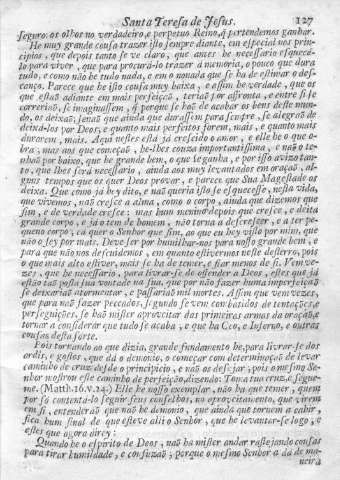 Santa Teresa de Jesus. 127
seguro: os olhos no verdadeiro, e perpetuo Reino, q̃ pertendemos ganhar.
He muy grande cousa trazer isto sempre diante, em especial nos prin-
cipios, que depois tanto se ve claro, que antes he necessario esquecê-
lo para viver, que para procurá-lo trazer à memoria, o pouco que dura
tudo, e como não he tudo nada, e em o nonada que se ha de estimar o des-
canço. Parece que he isto cousa muy baixa, e assim he verdade, que os
que estaõ adiante em mais perfeiçaõ, teriaõ por afronta, e entre si se
correriaõ, se imaginassem, q̃ porque se haõ de acabar os bens deste mun-
do, os deixaõ; senaõ que ainda que durassem para sempre, se alegraõ de
deixálos por Deos, e quanto mais perfeitos forem, mais, e quanto mais
durarem, mais. Aqui nestes està jà crescido o amor, e elle he o que o-
bra, mas aos que começaõ, he-lhes couza importantissima, e naõ o te-
nhaõ por baixo, que he grande bem, o que se ganha, e por isso avizo tan-
to, que lhes serà necessario, ainda aos muy levantados em oraçaõ, al-
guns tempos que os quer Deos provar, e parece que Sua Magestade os
deixa. Que como jà hey dito, e naõ queria isto se esquecesse, nesta vida,
que vivemos, naõ cresce a alma, como o corpo, ainda que dizemos que
sim, e de verdade cresce: mas hum menino depois que cresce, e deita
grande corpo, e jà o tem de homem, não torna a descrescer, e a ter pe-
queno corpo; cà quer o Senhor que sim, ao que eu hey visto por mim, que
não o sey por mais. Deve ser por humilhar-nos para nosso grande bem, e
para que não nos descuidemos, em quanto estivermos neste desterro, pois
o que mais alto estiver, mais se ha de temer, e fiar menos de si. Vem ve-
zes, que he necessario, para livrar-se de offender a Deos, estes que jà
estão taõ posta sua vontade na sua, que por não fazer huma imperfeiçaõ
se deixariaõ atormentar, e passariaõ mil mortes. Assim que vem vezes,
que para naõ fazer peccados, segundo se vem combatidos de tentações, e
perseguições, se haõ mister aproveitar das primeiras armas da oraçaõ, e
tornar a considerar que tudo se acaba, e que ha Ceo, e Inferno, e outras
cousas desta sorte.
Pois tornando ao que dizia, grande fundamento he, para livrar-se dos
ardis, e gostos, que dà o demonio, o começar com determinaçaõ de levar
caminho de cruz desde o principio, e naõ os desejar; pois o mesmo Se-
nhor mostrou este caminho de perfeiçaõ, dizendo: Toma tua cruz, e segue-
me. (Matth. 16. v. 24.) Elle he nosso exemplar, não ha que temer, quem
por só contentá-lo seguir seus conselhos, no aproveitamento, que virem
em si, entenderáõ que naõ he demonio, que ainda que tornem a cahir,
fica hum sinal de que esteve alli o Senhor, que he levantar-se logo, e
estes que agora direy:
Quando he o espirito de Deos, naõ ha mister andar rastejando cousas
para tirar humildade, e confusaõ; porque o mesmo Senhor a dá de ma-
neira